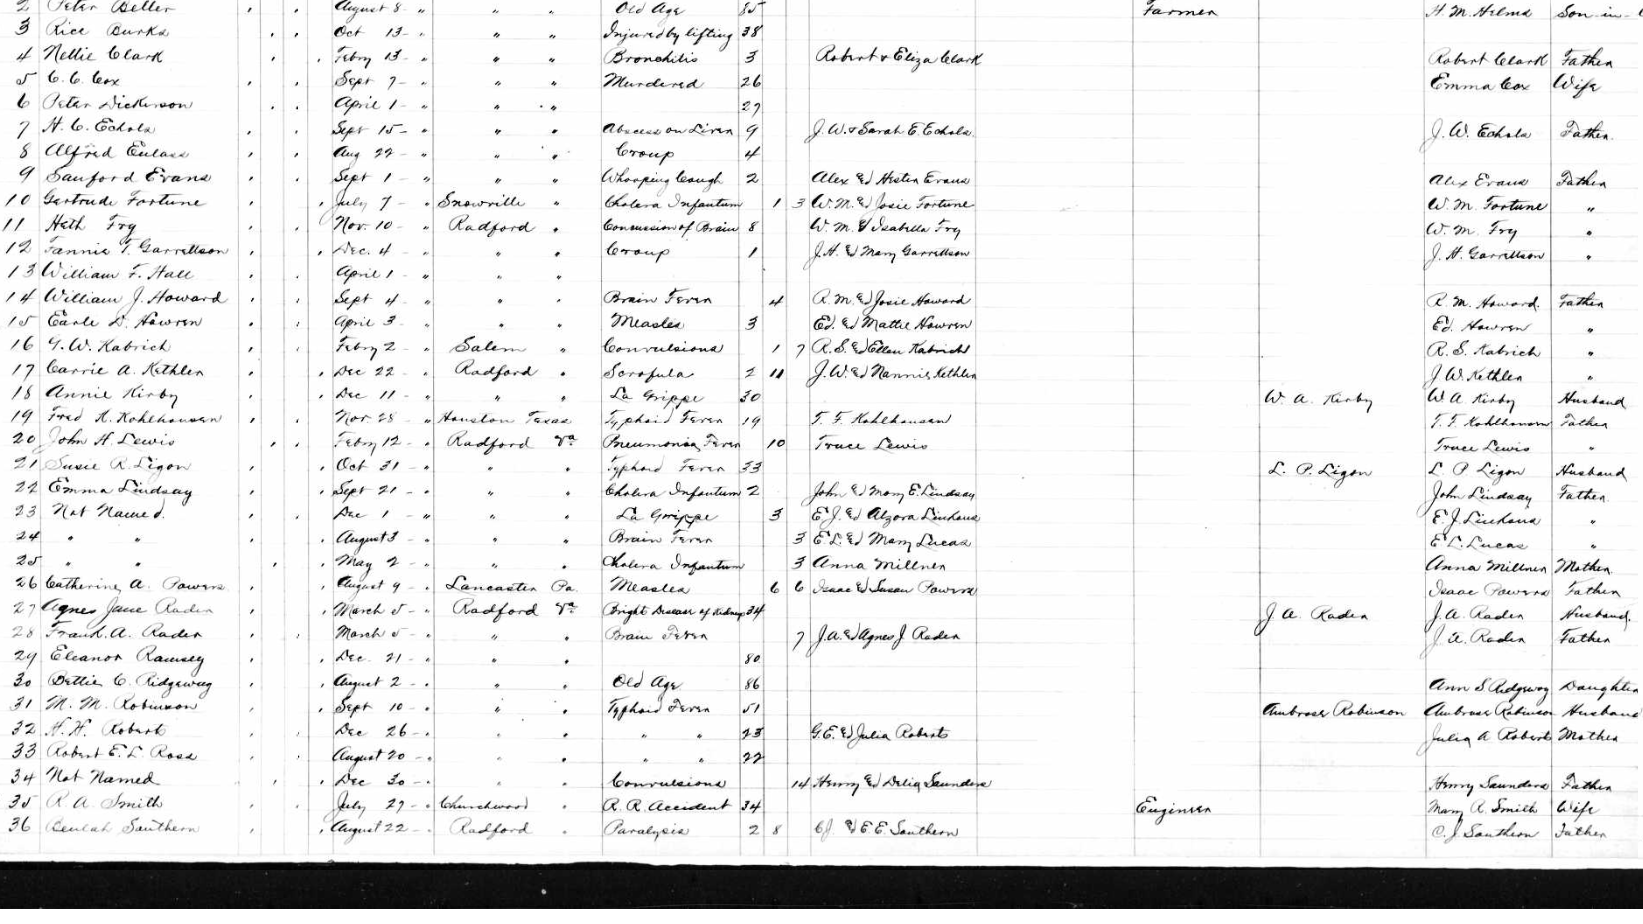 2 Peter Beller August 8 - " " " Old Age 85 Farmer H. M. Helms Son-in-
3 Rice Burks Oct 13 - " " " Injured by lifting 38
4 Nettie Clark Febry 13 - " " " Bronchitis 3 Robert & Eliza Clark Robert Clark Father
5 C. C. Cox Sept 7 - " " " Murdered 26 Emma Cox Wife
6 Peter Dickerson April 1 - " " " 27
7 H. C. Echols Sept 15 - " " " Abscess on Liver 9 J. W. & Sarah E Echols J. W. Echols Father
8 Alfred Aug 22 - " " " Croup 4
9 Sanford Evans Sept 1 - " " " Whooping Cough 2 Alex & Hester Evans Alex Evans Father
10 Gertrude Fortune July 7 - " Snowville " Cholera Infantum 1 3 W. M. & Josie Fortune W. M. Fortune "
11 Heth Fry Nov. 10 - " Radford " Concussion of Brain 8 W. M. & Isabella Fry W. M. Fry "
12 Fannie T. Garrettson Dec. 4 - " " " Croup 1 J. H. & Mary Garrettson J. H. Garrettson "
13 William F. Hall April 1 - " " "
14 William J. Howard Sept 4 - " " " Brain Fever 4 R. M. & Josie Howard R. M. Howard Father
15 Earle D. Howren April 3 - " " " Measles 3 Ed. & Mattie Howren Ed. Howren "
16 G. W. Kabrich Febry 2 - " Salem " Convulsions 1 7 R. S. & Ellen Kabrich R. S. Kabrich "
17 Carrie A. Kethler Dec 22 - " Radford " Scrofula 2 11 J. W. & Nannie Kethler J. W. Kethler "
18 Annie Kirby Dec 11 - " " " La Grippe 30 W. A. Kirby W A Kirby Husband
19 Fred K. Kohlhausen Nov. 28 - " Houston Texas Typhoid Fever 19 T. F. Kohlhausen T. F. Kohlhausen Father
20 John H Lewis Febry 12 - " Radford Va Pneumonia Fever 10 Truce Lewis Truce Lewis "
21 Susie R. Ligon Oct 31 - " " " Typhoid Fever 33 L. P. Ligon L P Ligon Husband
22 Emma Lindsay Sept 21 - " " " Cholera Infantum 2 John & Mary E. Lindsay John Lindsay Father
23 Not Named Dec 1 - " " " La Grippe 3 E. J. & Alzora Linkous E. J. Linkous "
24 " " August 3 - " " " Brain Fever 3 E. L. & Mary Lucas E L. Lucas "
25 " " May 2 - " " " Cholera Infantum 3 Anna Millner Anna Millner Mother
26 Catherine A. Powers August 9 - " Lancaster Pa. Measles 6 6 Isaac & Susan Powers Isaac Powers Father
27 Agnes Jane Rader March 5 - " Radford Va Bright Disease of Kidneys 34 J A. Rader J. A. Rader Husband
28 Frank. A. Rader March 5 - " " " Brain Fever 7 J. A. & Agnes J Rader J. A. Rader Father
29 Eleanor Ramsey Dec. 21 - " " " 80
30 Bettie C. Ridgeway August 2 - " " " Old Age 86 Ann S Ridgeway Daughter
31 M. M. Robinson Sept 10 - " " " Typhoid Fever 51 Ambrose Robinson Ambrose Robinson Husband
32 H. H. Roberts Dec 26 - " " " " " 23 G. E. & Julia Roberts Julia A Roberts Mother
33 Robert E. L. Ross August 20 - " " " " " 22
34 Not Named Dec 30 - " " " Convulsions 14 Henry & Delia Saunders Henry Saunders Father
35 R. A. Smith July 27 - " Churchwood " R. R. Accident 34 Engineer Mary R. Smith Wife
36 Beulah Southern August 22 - " Radford " Paralysis 2 8 C J. & E. E. Southern C. J. Southern Father